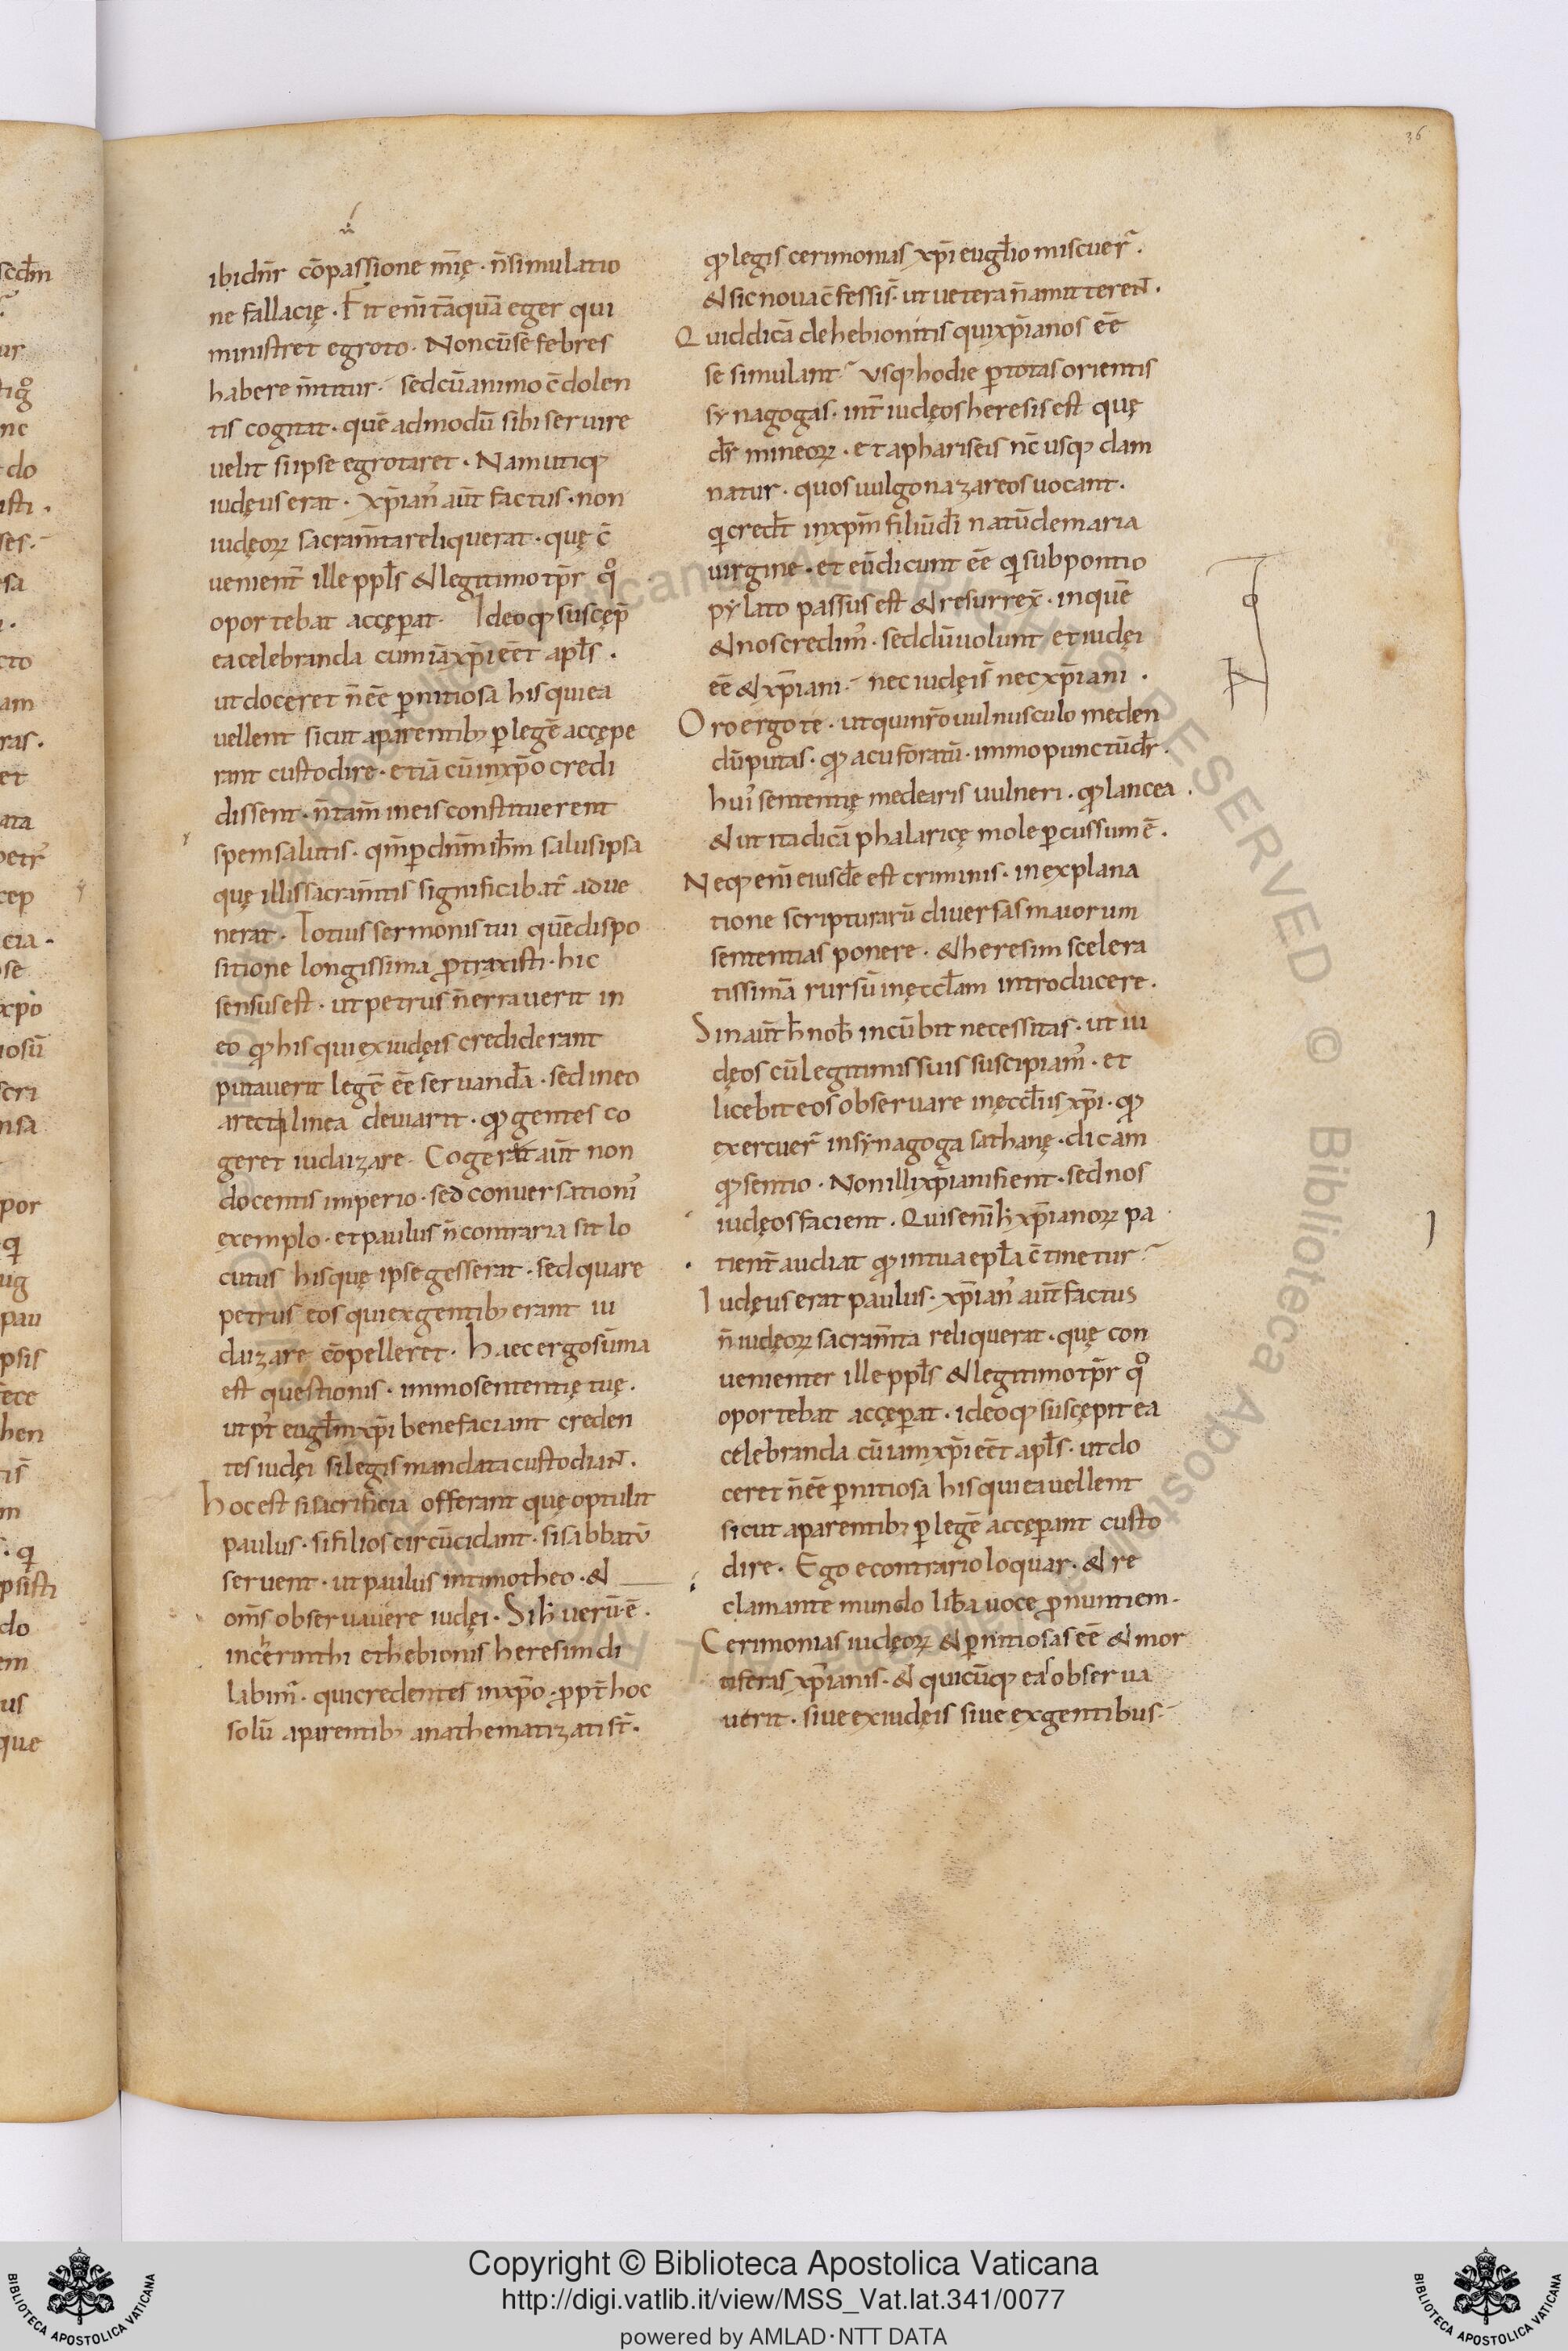 36
ibidn̄r cōpassione m̄ię · n̄ simulatio
ne fallacię · Fit eni̅ tāquā eger qui
ministret egroto · Non cū se febres
habere m̄titur · sed cū animo c̄dolen
tis cogitat · quē admodū sibi seruire
uelit si ipse egrotaret · Nam utiq;
iudęus erat · xp̄ian' aūt factus · non
iudęoꝝ sacram̄ta reliquerat · quę c̄
uenient̄ ille pp̄ls & legitimo tp̄r qͦ
oportebat accęp̱at · Ideoq; suscęp̄
ea celebranda cum iā xp̄i eēt apl̄s ·
ut doceret n̄ eē p̱nitiosa his qui ea
uellent sicut a parentib; p̱ legē accępe
rant custodire · etiā cū in xp̄o credi
dissent · n̄ tam̄ in eis constituerent
spem salutis · qm̄ p̱ dn̄m ih̄m salus ipsa
quę illis sacram̄tis significabat̄ adue
nerat · Totius sermonis tui quē dispo
sitione longissima ꝓtraxisti · hic
sensus est · ut petrus n̄ errauerit in
eo q; his qui ex iudęis crediderant
putauerit legē eē seruandā · sed in eo
a recta linea deuiarit · q; gentes co
geret iudaizare · Cogerat aūt non
docentis imperio · sed conuersation'
exemplo · et paulus n̄ contraria sit lo
cutus his quę ipse gesserat · sed quare
petrus eos qui ex gentib; erant iu
daizare cōpelleret · Haec ergo sūma
est questionis · immo sententię tuę ·
ut p' eugl̄m xp̄i bene faciant creden
tes iudęi si legis mandata custodiant ·
hoc est si sacrificia offerant quę optulit
paulus · si filios circūcidant · si sabbatū
seruent · ut paulus in timotheo · &
om̄s obseruauere iudęi · Si h' uerū ē ·
in cherinthi et hebionis heresim di
labim̄ · qui credentes in xp̄o · ꝓpt̄ hoc
solū a parentib; anathematizati st̄ ·
q; legis cerimonias xp̄i eugl̄io miscuer̄ ·
& sic noua c̄fessi s̄ · ut uetera n̄ amitterent ·
Quid dicā de hebionitis qui xp̄ianos eē
se simulant · Usq; hodie p̱ totas orientis
synagogas · int̄ iudęos heresis est quę
dr̄ mineoꝝ · et a phariseis nc̄ usq; dam
natur · quos uulgo nazareos uocant ·
qi credt̄ in xpm̄ filiū dī natū de maria
uirgine · et eū dicunt eē qi sub pontio
pylato passus est & resurrex̄ · in quē
& nos credim' · sed dū uolunt et iudęi
eē & xp̄iani · nec iudęi s̄ nec xp̄iani ·
Oro ergo te · ut qui nr̄o uulnusculo meden
dū putas · q; acu foratū · immo punctū dr̄ ·
hui' sententię medearis uulneri · q; lancea ·
& ut ita dicā phalaricę mole p̱cussum ē ·
Neq; eni̅ eiusdē est criminis · in explana
tione scripturarū diuersas maiorum
sententias ponere · & heresim scelera
tissimā rursū in ęccl̄am introducere ·
Sin aūt h' nob' incūbit necessitas · ut iu
dęos cū legitimis suis suscipiam' · et
licebit eos obseruare in ęccl̄iis xp̄i · q;
exercuer̄ in synagoga sathanę · dicam
q; sentio · Non illi xp̄iani fient · sed nos
iudęos facient · Quis eni̅ h' xp̄ianoꝝ pa
tient̄ audiat q; in tua epl̄a c̄tinetur ·
Iudęus erat paulus · xp̄ian' aūt factus
n̄ iudęoꝝ sacram̄ta reliquerat · quę con
uenienter ille pp̄ls & legitimo tp̄r qͦ
oportebat accęp̱at · ideoq; suscępit ea
celebranda cū iam xp̄i eēt apl̄s · ut do
ceret n̄ eē p̱nitiosa his qui ea uellent
sicut a parentib; p̱ legē accęp̱ant custo
dire · Ego e contrario loquar · & re
clamante mundo lib̄a uoce ꝓnuntiem ·
Cerimonias iudęoꝝ & p̱nitiosas eē & mor
tiferas xp̄ianis · & quicūq; ea obserua
uerit · siue ex iudęis siue ex gentibus ·
Copyright © Biblioteca Apostolica Vaticana
http://digi.vatlib.it/view/MSS_Vat.lat.341/0077
powered by AMLAD·NTT DATA
BIBLIOTECA APOSTOLICA VATICANA
BIBLIOTECA APOSTOLICA VATICANA